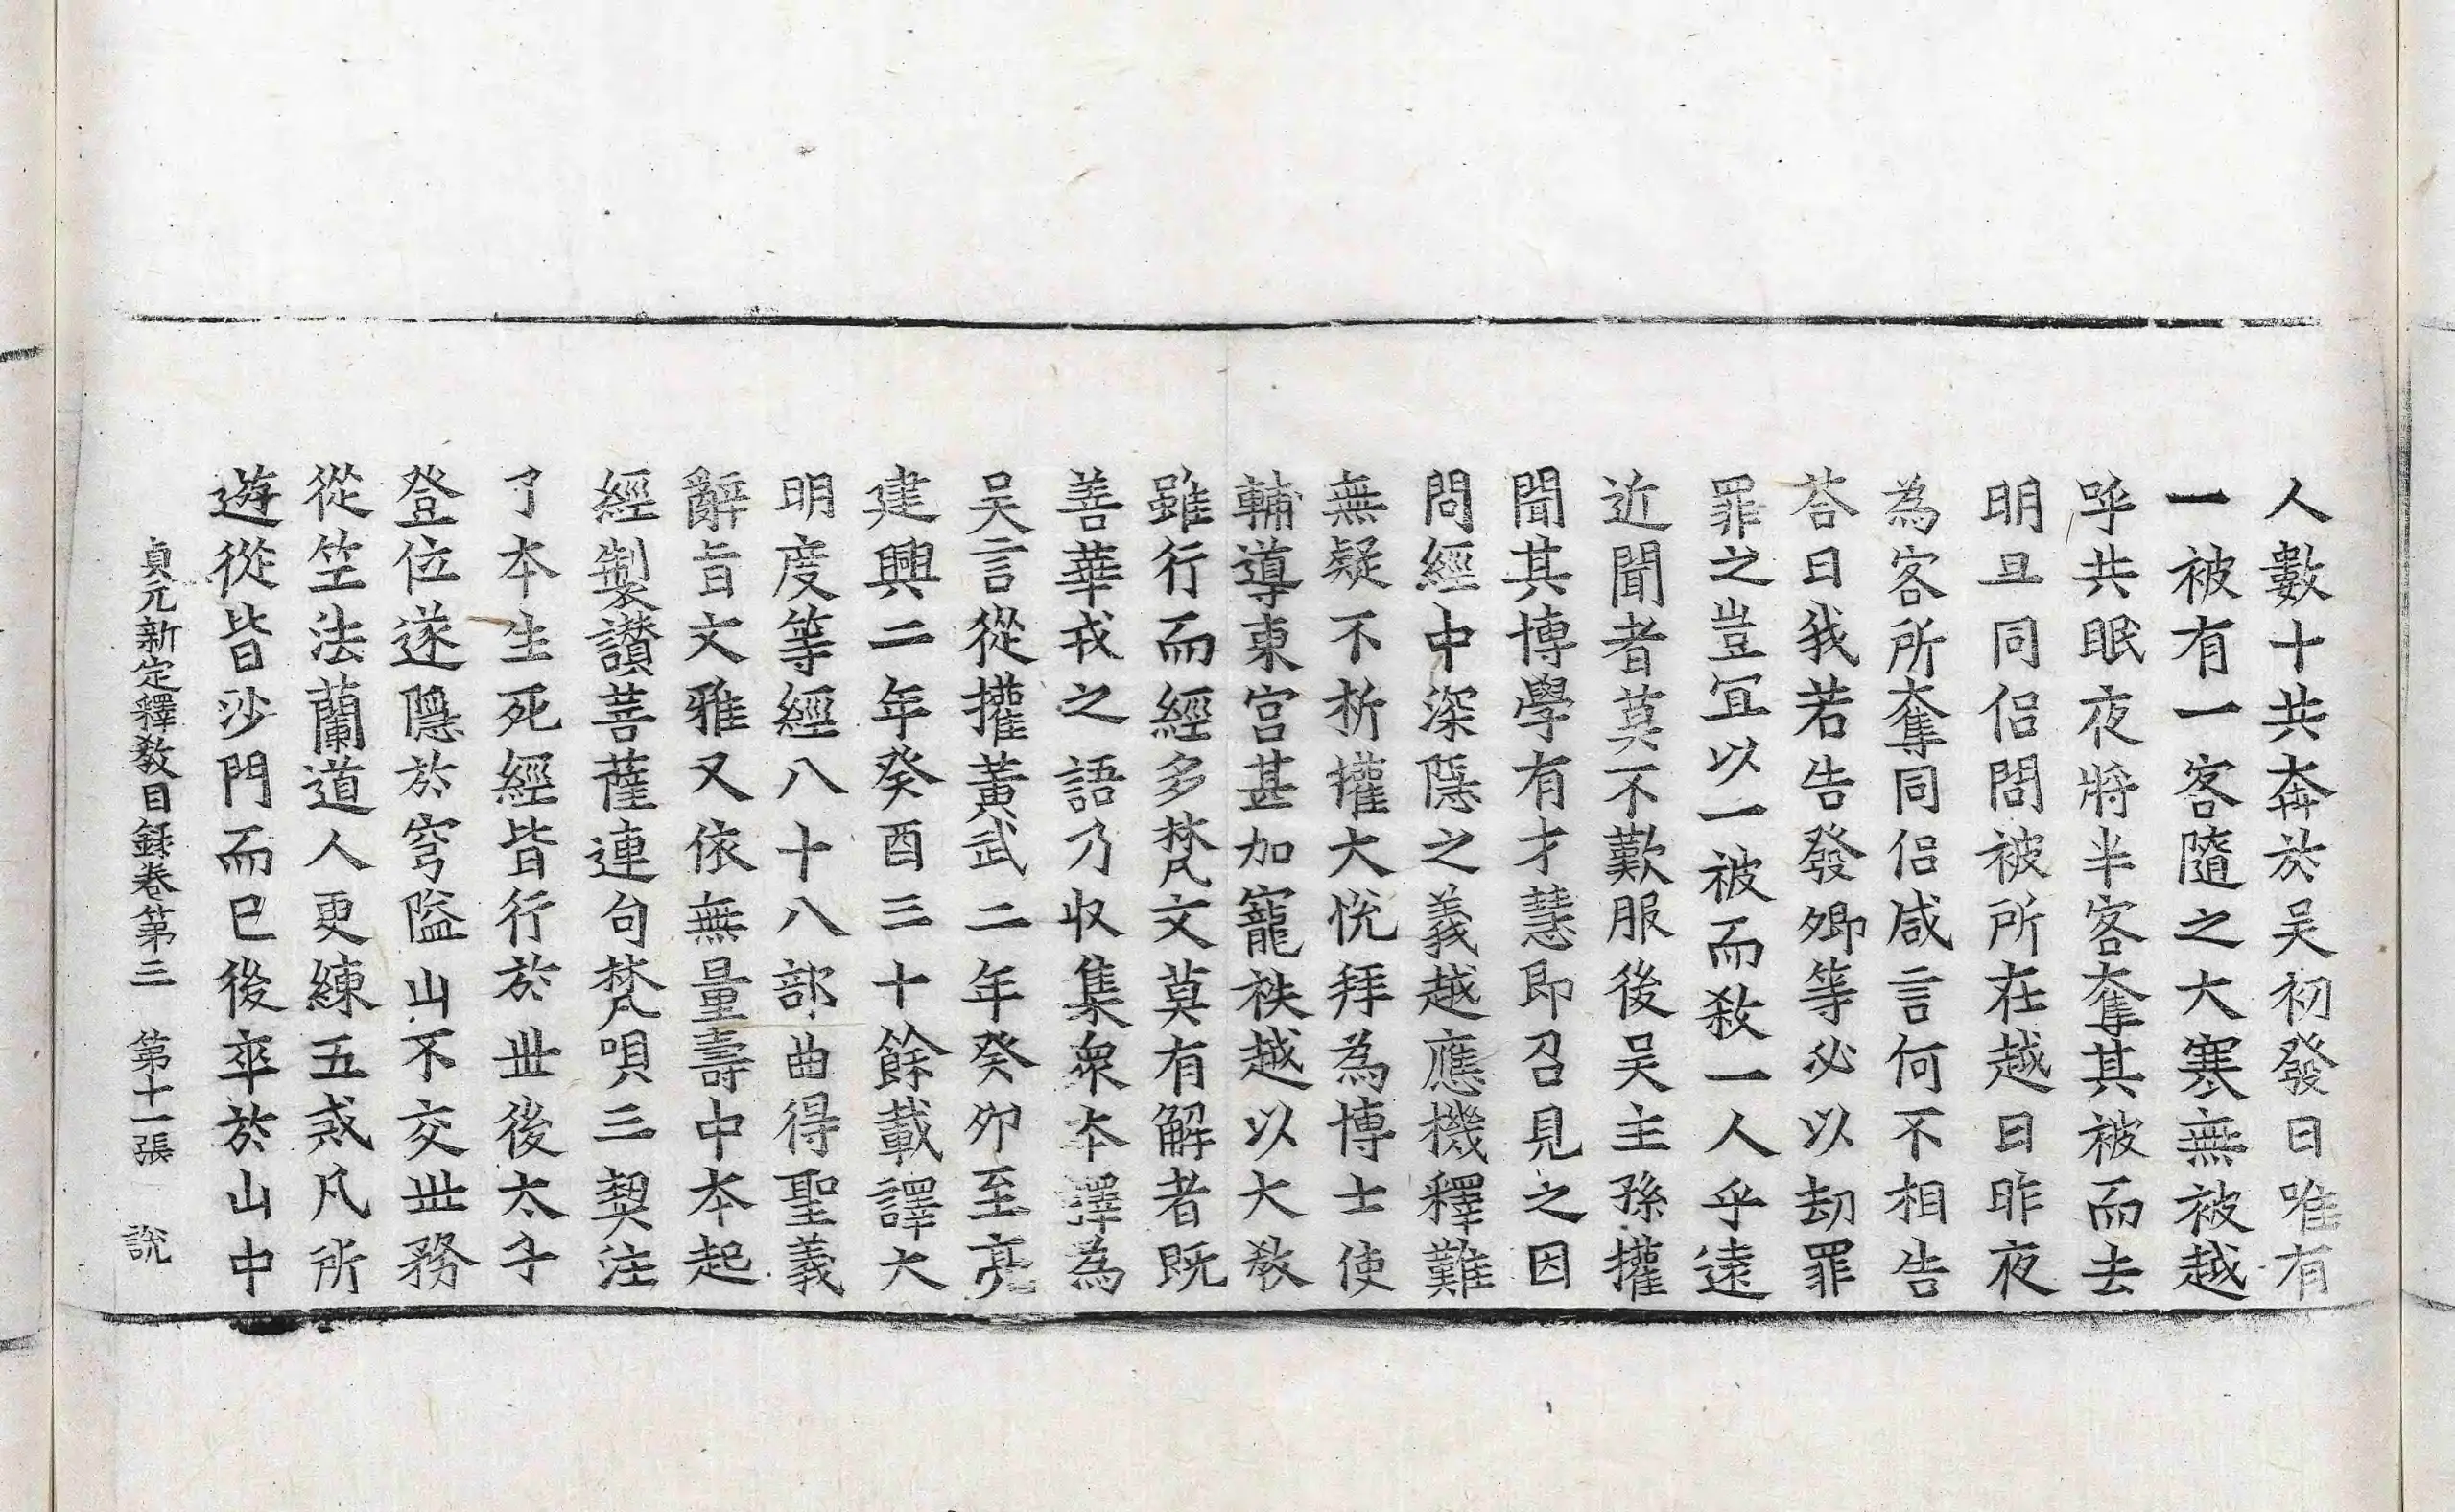 人數十共奔於吴初發日唯有
一被有一客隨之大寒無被越
呼共眠夜將半客奪其被而去
明旦同侣問被所在越曰昨夜
為客所奪同侣咸言何不相告
荅曰我若告發卿等必以劫罪
罪之豈冝以一被而煞一人乎遠
近聞者莫不歎服後吴主孫權
聞其博學有才慧即召見之因
問經中深隱之義越應機釋難
無疑不析權大悅拜為博士使
輔導東宮甚加寵袟越以大教
雖行而經多梵文莫有解者既
善華戎之語乃収集衆本譯為
吴言從權黃武二年癸卯至亮
建興二年癸酉三十餘載譯大
明度等經八十八部曲得聖義
辭旨文雅又依無量壽中本起
經製讃菩薩連句梵唄三契注
了本生死經皆行於世後太子
登位遂隱於穹隘山不交世務
從竺法蘭道人更練五戒凡所
遊從皆沙門而已後卒於山中
貞元新定釋教目錄卷第三 第十一張 說